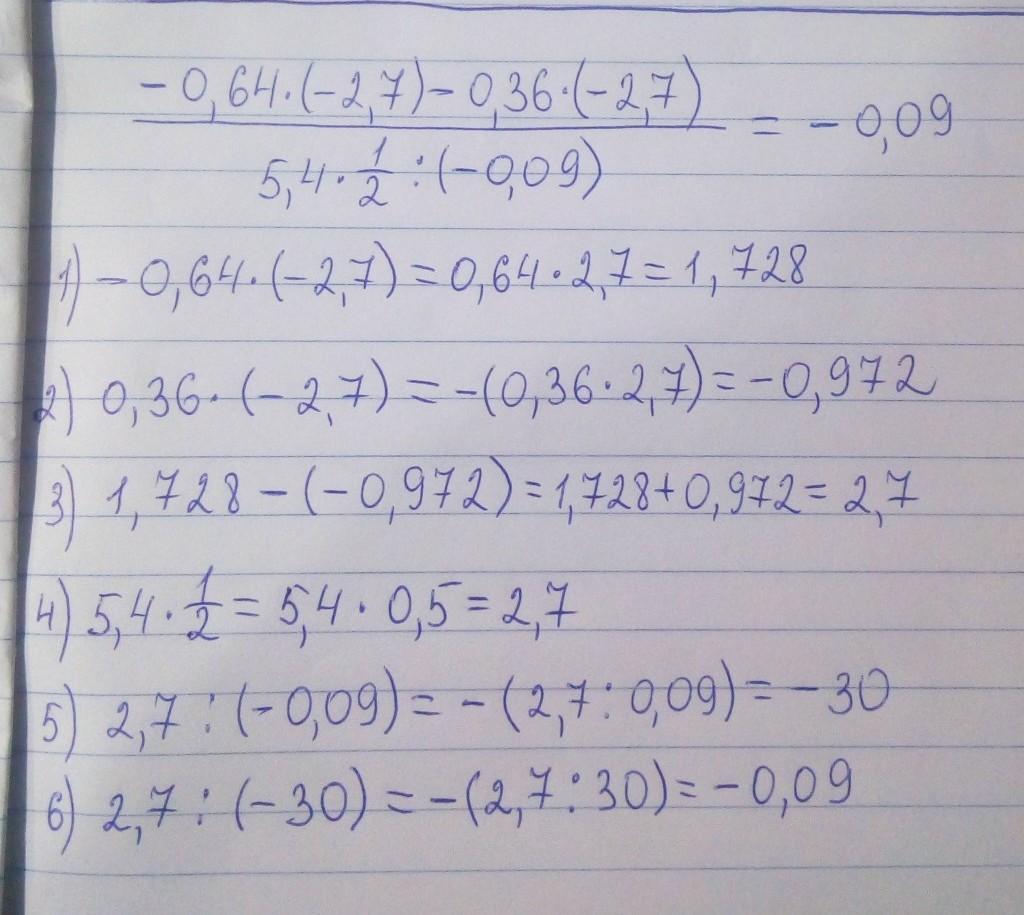 -0,64·(-2,7)-0,36·(-2,7)
5,4·1/2:(-0,09)
= -0,09
1) -0,64·(-2,7)=0,64·2,7=1,728
2) 0,36·(-2,7)=-(0,36·2,7)=-0,972
3) 1,728-(-0,972)=1,728+0,972=2,7
4) 5,4·1/2=5,4·0,5=2,7
5) 2,7:(-0,09)=-(2,7:0,09)=-30
6) 2,7:(-30)=-(2,7:30)=-0,09